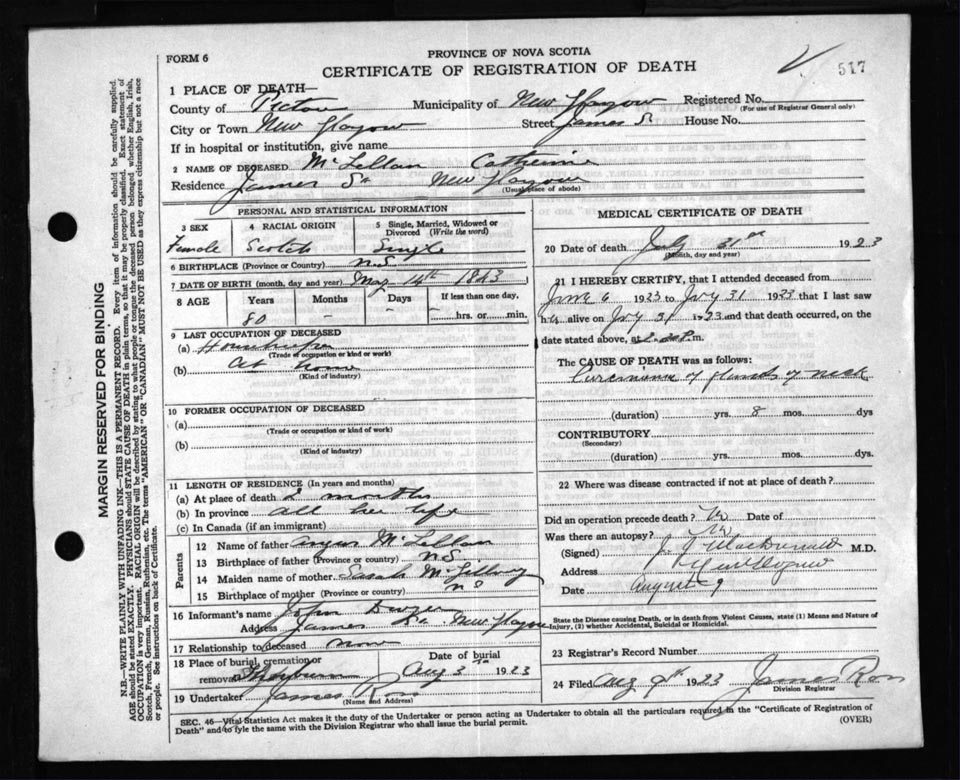 517
PROVINCE OF NOVA SCOTIA
FORM 6
CERTIFICATE OF REGISTRATION OF DEATH
1 PLACE OF DEATH—
County of Pictou Municipality of New Glasgow Registered No.
(For use of Registrar General only)
City or Town New Glasgow Street James St House No.
If in hospital or institution, give name
2 NAME OF DECEASED McLellan Catherine
Residence James St New Glasgow
(Usual place of abode)
PERSONAL AND STATISTICAL INFORMATION
3 SEX Female
4 RACIAL ORIGIN Scotch
5 Single, Married, Widowed or Divorced (Write the word) Single
6 BIRTHPLACE (Province or Country) N.S.
7 DATE OF BIRTH (month, day and year) May 14th 1843
8 AGE Years Months Days If less than one day,
80 – – hrs. or min.
9 LAST OCCUPATION OF DECEASED
(a) Housekeeper
(Trade or occupation or kind or work)
(b) At home
(Kind of industry)
10 FORMER OCCUPATION OF DECEASED
(a)
(Trade or occupation or kind of work)
(b)
(Kind of industry)
11 LENGTH OF RESIDENCE (In years and months)
(a) At place of death 2 months
(b) In province all her life
(c) In Canada (if an immigrant)
Parents
12 Name of father Angus McLellan
13 Birthplace of father (Province or country) N.S.
14 Maiden name of mother Sarah
15 Birthplace of mother (Province or country) NS
16 Informant's name John
Address James St. New Glasgow
17 Relationship to deceased none
18 Place of burial, cremation or removal
Date of burial Aug 3 1923
19 Undertaker James Ross
(Name and Address)
MEDICAL CERTIFICATE OF DEATH
20 Date of death July 31st 1923
(Month, day and year)
21 I HEREBY CERTIFY, that I attended deceased from
June 6 1923 to July 31 1923 that I last saw
her alive on July 31 1923 and that death occurred, on the
date stated above, at P.m.
The CAUSE OF DEATH was as follows:
Carcinoma of glands of neck
(duration) yrs. 8 mos. dys
CONTRIBUTORY
(Secondary)
(duration) yrs. mos. dys
22 Where was disease contracted if not at place of death?
Did an operation precede death? No Date of
Was there an autopsy? No
(Signed) MacDonald M.D.
Address New Glasgow
Date August 9
State the Disease causing Death, or in death from Violent Causes, state (1) Means and Nature of Injury, (2) whether Accidental, Suicidal or Homicidal.
23 Registrar's Record Number
24 Filed Aug 9th 1923 James Ross
Division Registrar
SEC. 46—Vital Statistics Act makes it the duty of the Undertaker or person acting as Undertaker to obtain all the particulars required in the "Certificate of Registration of
Death" and to fyle the same with the Division Registrar who shall issue the burial permit.
(OVER)
MARGIN RESERVED FOR BINDING
N.B.—WRITE PLAINLY WITH UNFADING INK—THIS IS A PERMANENT RECORD. Every item of information should be carefully supplied.
AGE should be stated EXACTLY. PHYSICIANS should STATE CAUSE OF DEATH in plain terms, so that it may be properly classified. Exact statement of
OCCUPATION is very important. RACIAL ORIGIN will be described by stating to what people or tongue the deceased person belonged whether English, Irish,
Scotch, French, German, Russian, Ruthenian, etc. The terms "AMERICAN" OR "CANADIAN" MUST NOT BE USED as they express citizenship but not a race
or people. See instructions on back of Certificate.